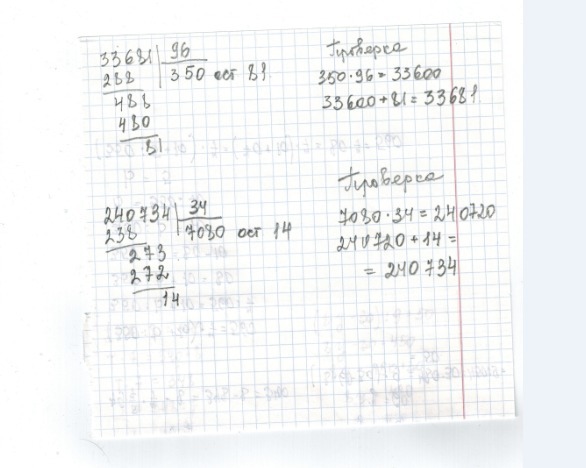 33681 | 96
288 350 ост 81
488
480
81
Проверка
350·96 = 33600
33600 + 81 = 33681
240734 | 34
238 7080 ост 14
273
272
14
Проверка
7080·34 = 240720
240720 + 14 =
= 240734